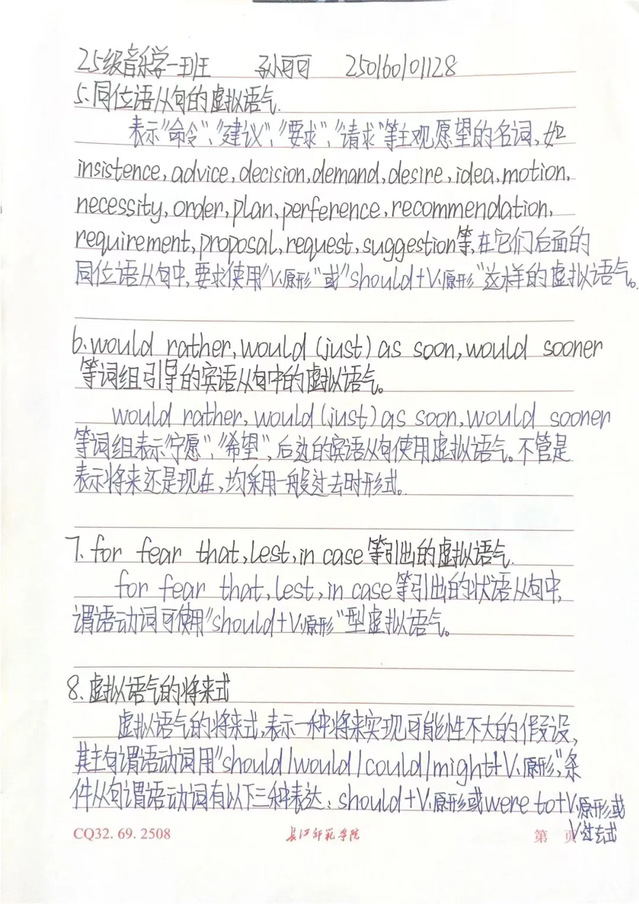 25级音乐学一班 孙可可 250160101128
5.同位语从句的虚拟语气.
表示"命令"、"建议"、"要求"、"请求"等主观愿望的名词,如
insistence,advice,decision,demand,desire,idea,motion,
necessity,order,plan,perference,recommendation,
requirement,proposal,request,suggestion等,在它们后面的
同位语从句中,要求使用"V.原形"或"should+V.原形"这样的虚拟语气。
6.would rather,would (just) as soon,would sooner
等词组引导的宾语从句中的虚拟语气。
would rather,would (just) as soon,would sooner
等词组表示"宁愿"、"希望",后边的宾语从句使用虚拟语气。不管是
表示将来还是现在,均采用一般过去时形式。
7.for fear that,lest,in case等引出的虚拟语气.
for fear that,lest,in case等引出的状语从句中,
谓语动词可使用"should+V.原形"型虚拟语气。
8.虚拟语气的将来式
虚拟语气的将来式,表示一种将来实现可能性不大的假设,
其主句谓语动词用"should/would/could/might+V.原形",条
件从句谓语动词有以下三种表达:should+V.原形或were to+V.原形或
V过去式
CQ32.69.2508 长江师范学院 第 页